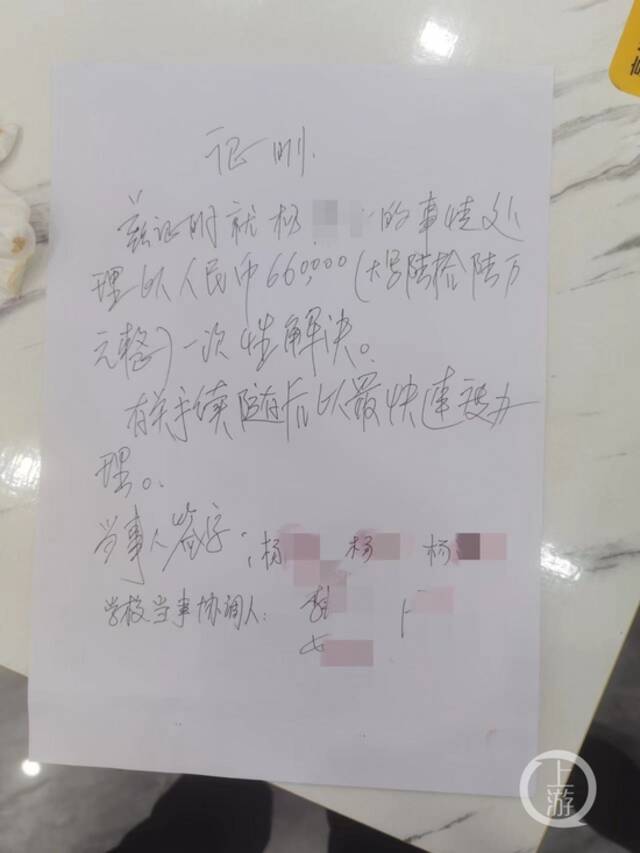 证明
兹证明就杨 的事情处
理以人民币660,000(大写陆拾陆万
元整)一次性解决。
有关手续随后以最快速度办
理。
当事人签字: 杨 杨 杨
学校当事协调人:
上游